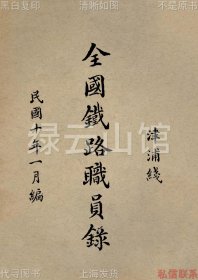 黑白复印 清晰如图 不是原书
津浦綫
全國鐵路職員錄
民國十年一月編
绿云山馆
代寻图书 上海发货 私信联系